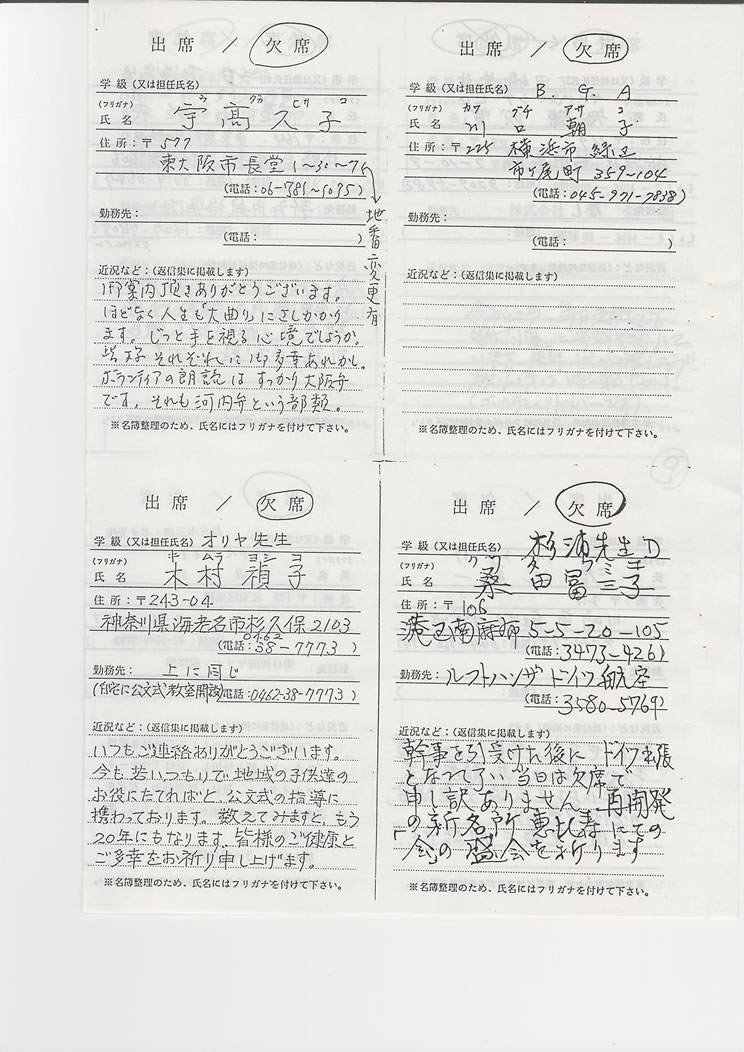 出席 / 欠席
学級（又は担任氏名）
（フリガナ） ウ ダカ ヒサ コ
氏名 宇高久子
住所：〒 577
東大阪市長堂1~30~7
(電話：06-781~5095)
→地番変更有
勤務先：
(電話： )
近況など：（返信集に掲載します）
御案内頂きありがとうございます。
ほどなく人生も「大曲り」にさしかかり
ます。じっと手を視る心境でしょうか。
皆様それぞれに御多幸あれかし。
ボランティアの朗読はすっかり大阪弁
です。それも河内弁という部類。
※名簿整理のため、氏名にはフリガナを付けて下さい。
出席 / 欠席
学級（又は担任氏名） B. G. A
（フリガナ） カワ グチ アサ コ
氏名 川口朝子
住所：〒225 横浜市緑区
市ケ尾町 359~104
(電話：045-971-7838)
勤務先：
(電話： )
近況など：（返信集に掲載します）
※名簿整理のため、氏名にはフリガナを付けて下さい。
出席 / 欠席
学級（又は担任氏名）オリヤ先生
（フリガナ） キ ムラ ヨシ コ
氏名 木村禎子
住所：〒243-04
神奈川県海老名市杉久保2103
0462
(電話：38-7773)
勤務先： 上に同じ
(自宅に公文式教室開設)(電話：0462-38-7773)
近況など：（返信集に掲載します）
いつもご連絡ありがとうございます。
今も若いつもりで地域の子供達の
お役にたてればと、公文式の指導に
携わっております。数えてみますと、もう
20年にもなります。皆様のご健康と
ご多幸をお祈り申し上げます。
※名簿整理のため、氏名にはフリガナを付けて下さい。
出席 / 欠席
学級（又は担任氏名） 杉浦先生D
（フリガナ） クワ タ フ ミ コ
氏名 桑田富三子
住所：〒106
港区南麻布 5-5-20-105
(電話：3473-4261)
勤務先：ルフトハンザ ドイツ航空
(電話：3580-5769)
近況など：（返信集に掲載します）
幹事を引受けた後に ドイツ出張
となって了い当日は欠席で
申し訳ありません。再開発
の新名所 恵比寿にての
「会」の盛会を祈ります
※名簿整理のため、氏名にはフリガナを付けて下さい。